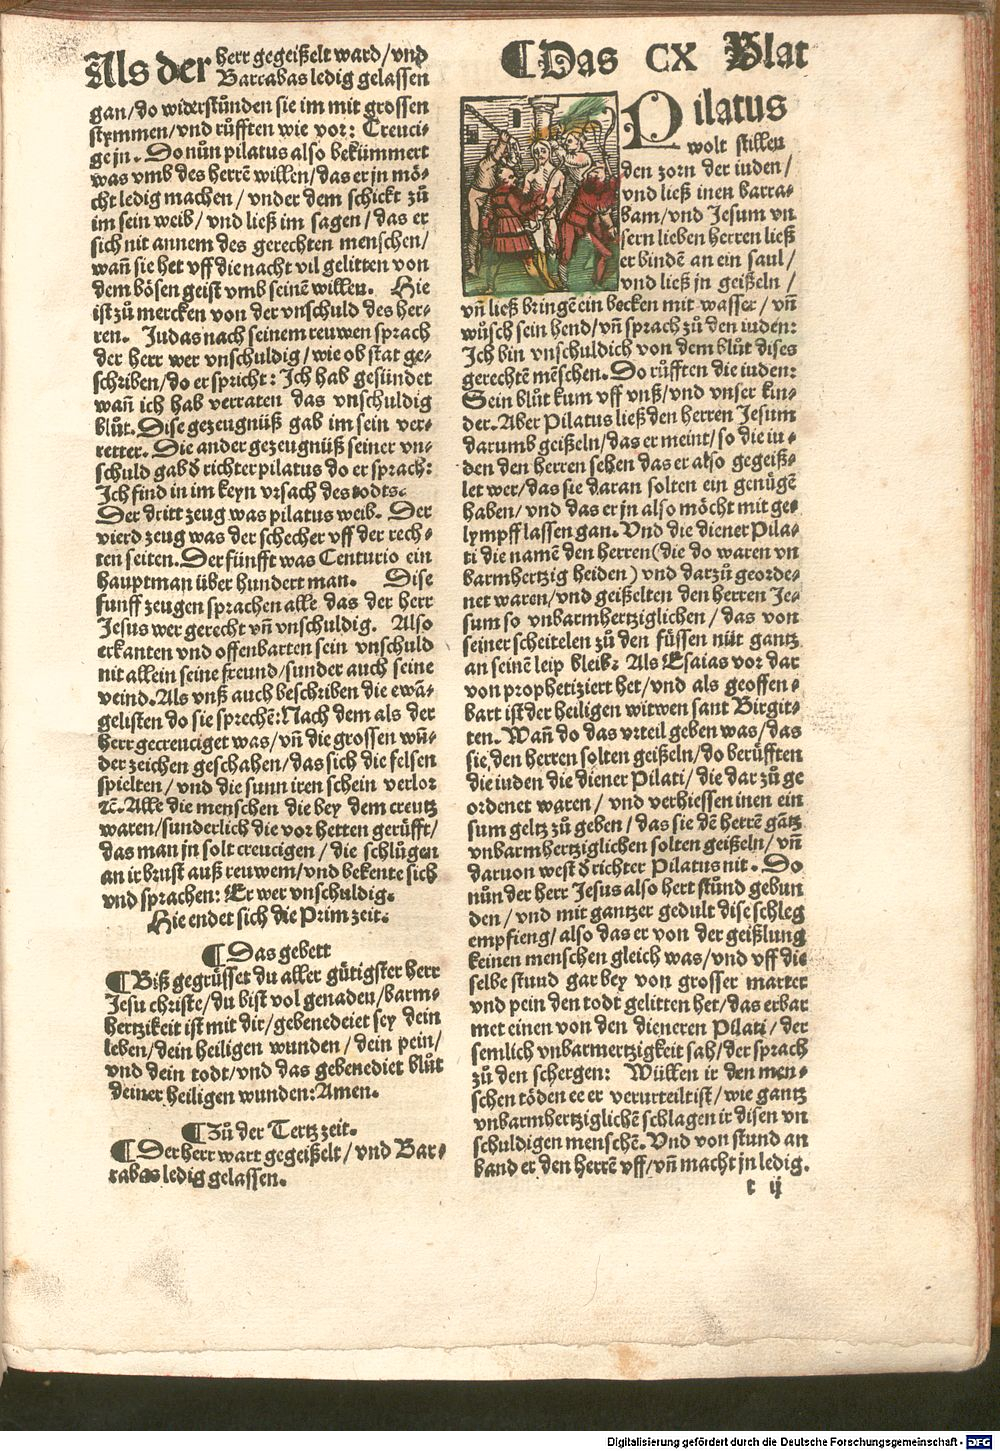 Als der herr gegeißelt ward/vnd
Barrabas ledig gelassen
¶Das CX Blat
gan/do widerstůnden sie im mit grossen
stymmen/vnd růfften wie vor: Creuci-
ge jn. Do nůn pilatus also bekümmert
was vmb des herrē willen/das er jn mö-
cht ledig machen/ vnder dem schickt zů
im sein weib/ vnd ließ im sagen/das er
sich nit annem des gerechten menschen/
wañ sie het vff die nacht vil gelitten von
dem bösen geist vmb seinē willen. Hie
ist zů mercken von der vnschuld des her-
ren. Judas nach seinem reuwen sprach
der herr wer vnschuldig/wie ob stat ge-
schriben/do er spricht: Ich hab gesündet
wañ ich hab verraten das vnschuldig
blůt. Dise gezeugnüß gab im sein ver-
retter. Die ander gezeugnüß seiner vn-
schuld gab đ richter pilatus do er sprach:
Ich find in im keyn vrsach des todts.
Der dritt zeug was pilatus weib. Der
vierd zeug was der schecher vff der rech-
ten seiten. Der fünfft was Centurio ein
hauptman über hundert man. Dise
funff zeugen sprachen alle das der herr
Jesus wer gerecht vñ vnschuldig. Also
erkanten vnd offenbarten sein vnschuld
nit allein seine freund/sunder auch seine
veind. Als vnß auch beschriben die ewā-
gelisten do sie sprechē: Nach dem als der
herr gecreuciget was/vñ die grossen wū-
der zeichen geschahen/das sich die felsen
spielten/vnd die sunn iren schein verlor
ꝛc. Alle die menschen die bey dem creutz
waren/sunderlich die vor hetten gerüfft/
das man jn solt creucigen/die schlůgen
an ir brust auß reuwem/vnd bekente sich
vnd sprachen: Er wer vnschuldig.
Hie endet sich die Prim zeit.
¶Das gebett
¶Biß gegrüsset du aller gütigster herr
Jesu christe/du bist vol genaden/barm-
hertzikeit ist mit dir/gebenedeiet sey dein
leben/dein heiligen wunden/dein pein/
vnd dein todt/vnd das gebenediet blůt
deiner heiligen wunden: Amen.
¶Zů der Tertz zeit.
¶Der herr wart gegeißelt/vnd Bar-
rabas ledig gelassen.
Pilatus
wolt stillen
den zorn der iuden/
vnd ließ inen barra-
bam/vnd Jesum vn
sern lieben herren ließ
er bindē an ein saul/
vnd ließ jn geißeln/
vñ ließ bringē ein becken mit wasser/vñ
wůsch sein hend/vñ sprach zů den iuden:
Ich bin vnschuldich von dem blůt dises
gerechtē mēschen. Do růfften die iuden:
Sein blůt kum vff vnß/vnd vnser kin-
der. Aber Pilatus ließ den herren Jesum
darumb geißeln/das er meint/so die iu-
den den herren sehen das er also gegeiß-
let wer/das sie daran solten ein genügē
haben/vnd das er jn also möcht mit ge-
lympff lassen gan. Vnd die diener Pila-
ti die namē den herren(die do waren vn
barmhertzig heiden) vnd darzů georde-
net waren/vnd geißelten den herren Je-
sum so vnbarmhertziglichen/das von
seiner scheitelen zů den füssen nüt gantz
an seinē leip bleib: Als Esaias vor dar
von prophetiziert het/vnd als geoffen-
bart ist der heiligen witwen sant Birgit-
ten. Wañ do das vrteil geben was/das
sie den herren solten geißeln/do berüfften
die iuden die diener Pilati/die dar zů ge
ordenet waren/ vnd verhiessen inen ein
sum geltz zů geben/das sie dē herrē gātz
vnbarmhertziglichen solten geißeln/vñ
daruon west đ richter Pilatus nit. Do
nůn der herr Jesus also hert stůnd gebun
den/vnd mit gantzer gedult dise schleg
empfieng/also das er von der geißlung
keinen menschen gleich was/vnd vff die
selbe stund gar bey von grosser marter
vnd pein den todt gelitten het/das erbar
met einen von den dieneren Pilati/der
semlich vnbarmertzigkeit sah/der sprach
zů den schergen: Wüllen ir den men-
schen töden ee er verurteilt ist/wie gantz
vnbarmhertziglichē schlagen ir disen vn
schuldigen menschē. Vnd von stund an
band er den herrē vff/vñ macht jn ledig.
t ij
Digitalisierung gefördert durch die Deutsche Forschungsgemeinschaft - DFG